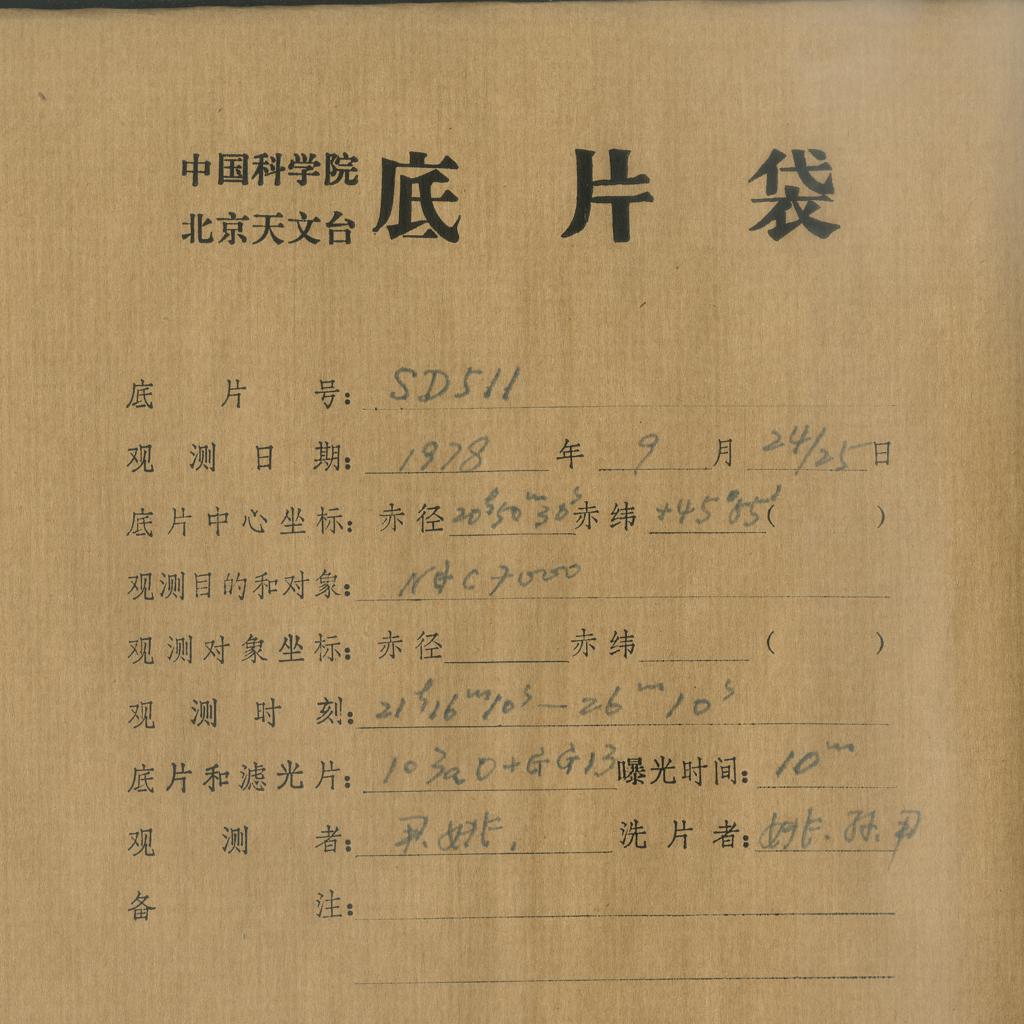 中国科学院
北京天文台
底片袋
底片号: SD511
观测日期: 1978年9月24/25日
底片中心坐标: 赤径20h50m30s赤纬+45°85′( )
观测目的和对象: NGC7000
观测对象坐标: 赤径 赤纬 ( )
观测时刻: 21h16m10s—26m10s
底片和滤光片: 103aO+GG13曝光时间: 10m
观测者: 尹.姚. 洗片者: 姚.孙.尹
备注: